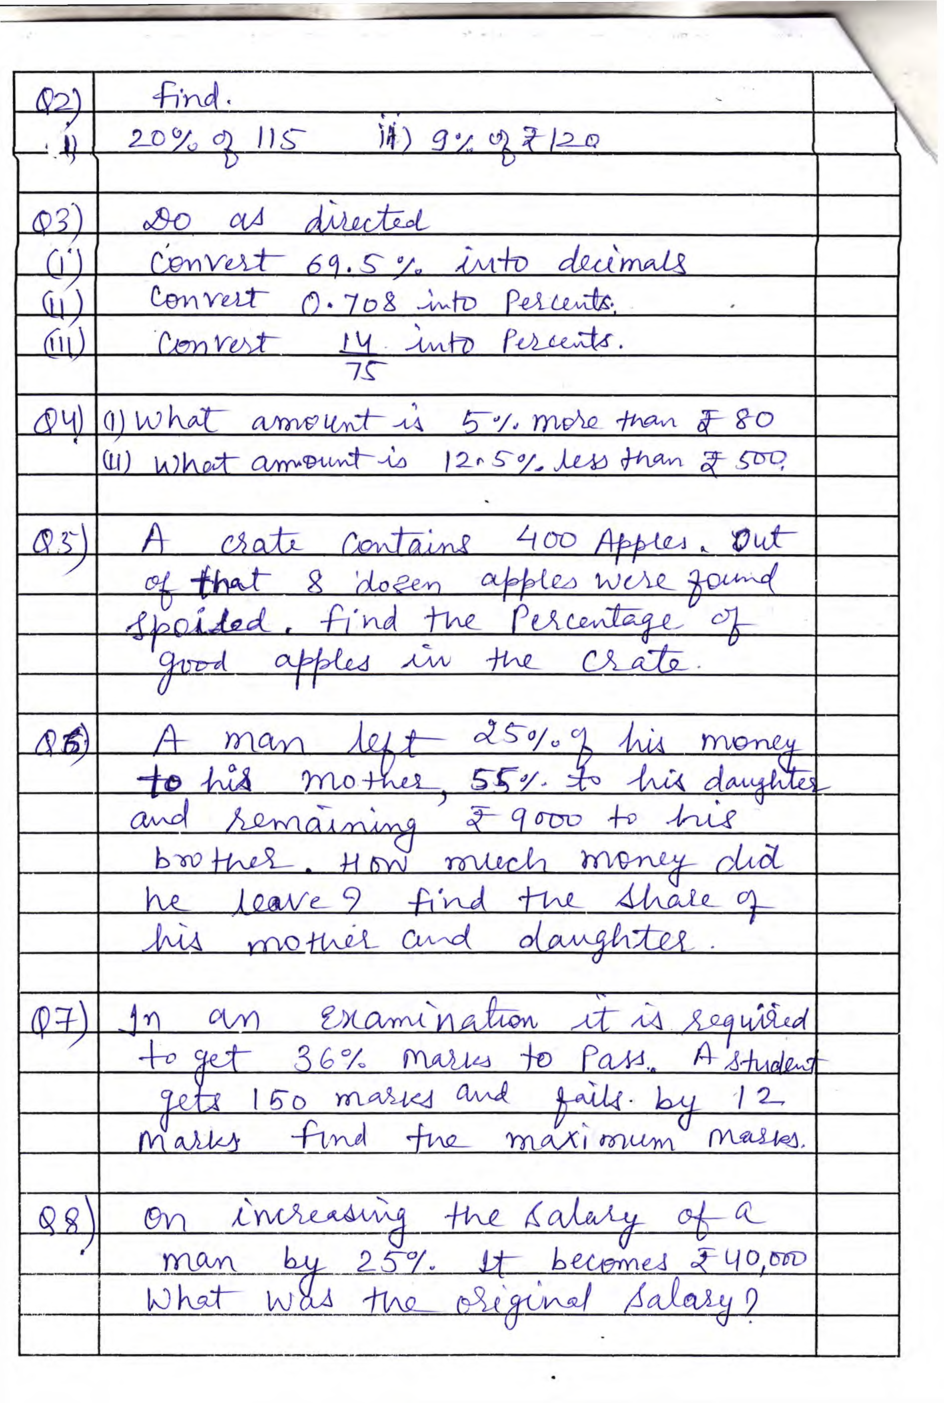 Q2) find.
i) 20% of 115 ii) 9% of ₹120
Q3) Do as directed
(i) Convert 69.5% into decimals
(ii) Convert 0.708 into Percents.
(iii) Convert 14/75 into Percents.
Q4) (i) What amount is 5% more than ₹ 80
(ii) What amount is 12.5% less than ₹ 500.
Q5) A crate contains 400 Apples. Out
of that 8 dozen apples were found
spoiled. find the Percentage of
good apples in the crate.
Q6) A man left 25% of his money
to his mother, 55% to his daughter
and remaining ₹ 9000 to his
brother. How much money did
he leave? find the share of
his mother and daughter.
Q7) In an Examination it is required
to get 36% marks to Pass. A student
gets 150 marks and fails. by 12
marks find the maximum marks.
Q8) On increasing the salary of a
man by 25%. It becomes ₹40,000
What was the original salary?